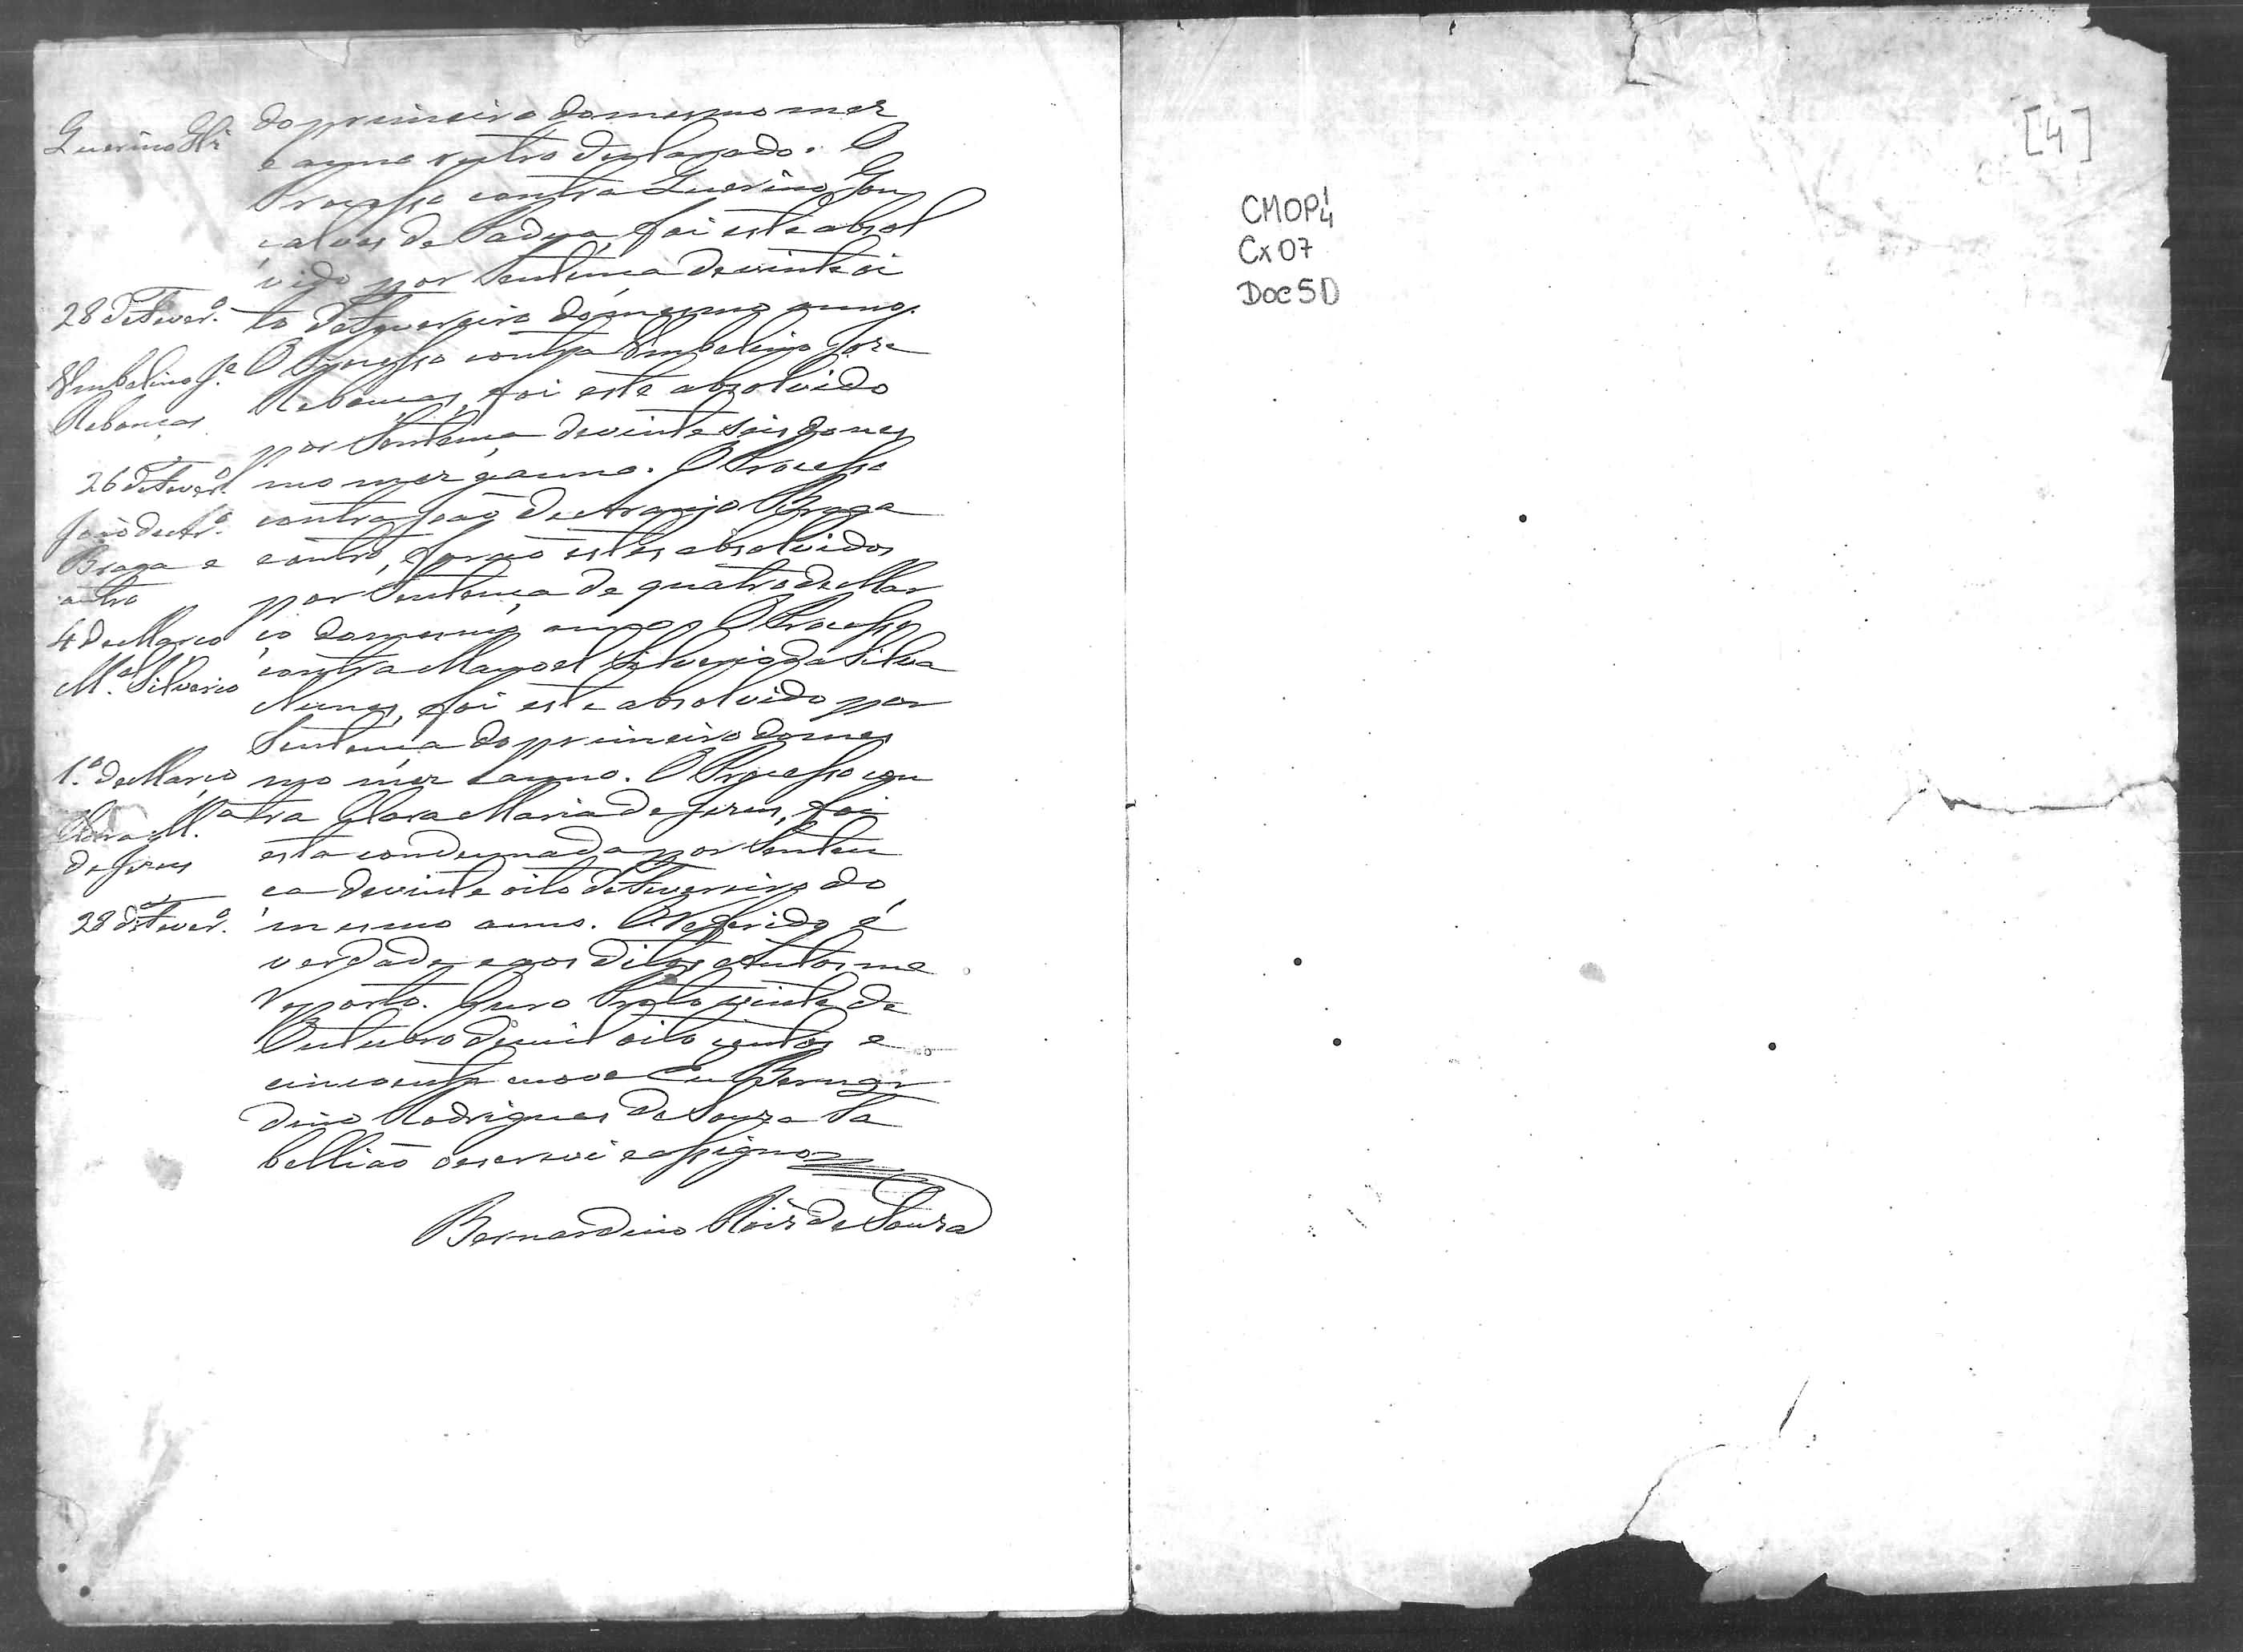 do primeiro do mesmo mez
Querino Glz
e anno retro declarado. O
Processo contra Querino Gon
çalves de Padua, foi este absol
vido por Sentença de vinte oi
28 de Fever.º
to de Fevereiro do mesmo anno.
Umbelino J.e
O Processo contra Umbelino Jose
Rebouças
Rebouças, foi este absolvido
por Sentença de vinte seis do mes
26 de Fever.º
mo mez e anno. O Processo
João de Ar.º
contra João de Araujo Braga
Braga e
e outro, forão estes absolvidos
outro
por Sentença de quatro de Mar
4 de Março
ço do mesmo anno. O Processo
M.el Silverio
contra Manoel Silverio da Silva
Nunes, foi este absolvido por
Sentença do primeiro do mes
1.º de Março
mo mez e anno. O Processo con
Clara M.ª
tra Clara Maria de Jesus, foi
de Jesus
esta condemnada por Senten
ça de vinte oito de Fevereiro do
28 de Fever.º
mesmo anno. O referido é
verdade e aos ditos autos me
reporto. Ouro Preto vinte de
Outubro de mil oito centos e
cincoenta e nove Eu Bernar
dino Rodrigues de Souza Ta
bellião o escrevi e assigno
Bernardino Roiz de Souza
[4]
CMOP
Cx 07
Doc 50